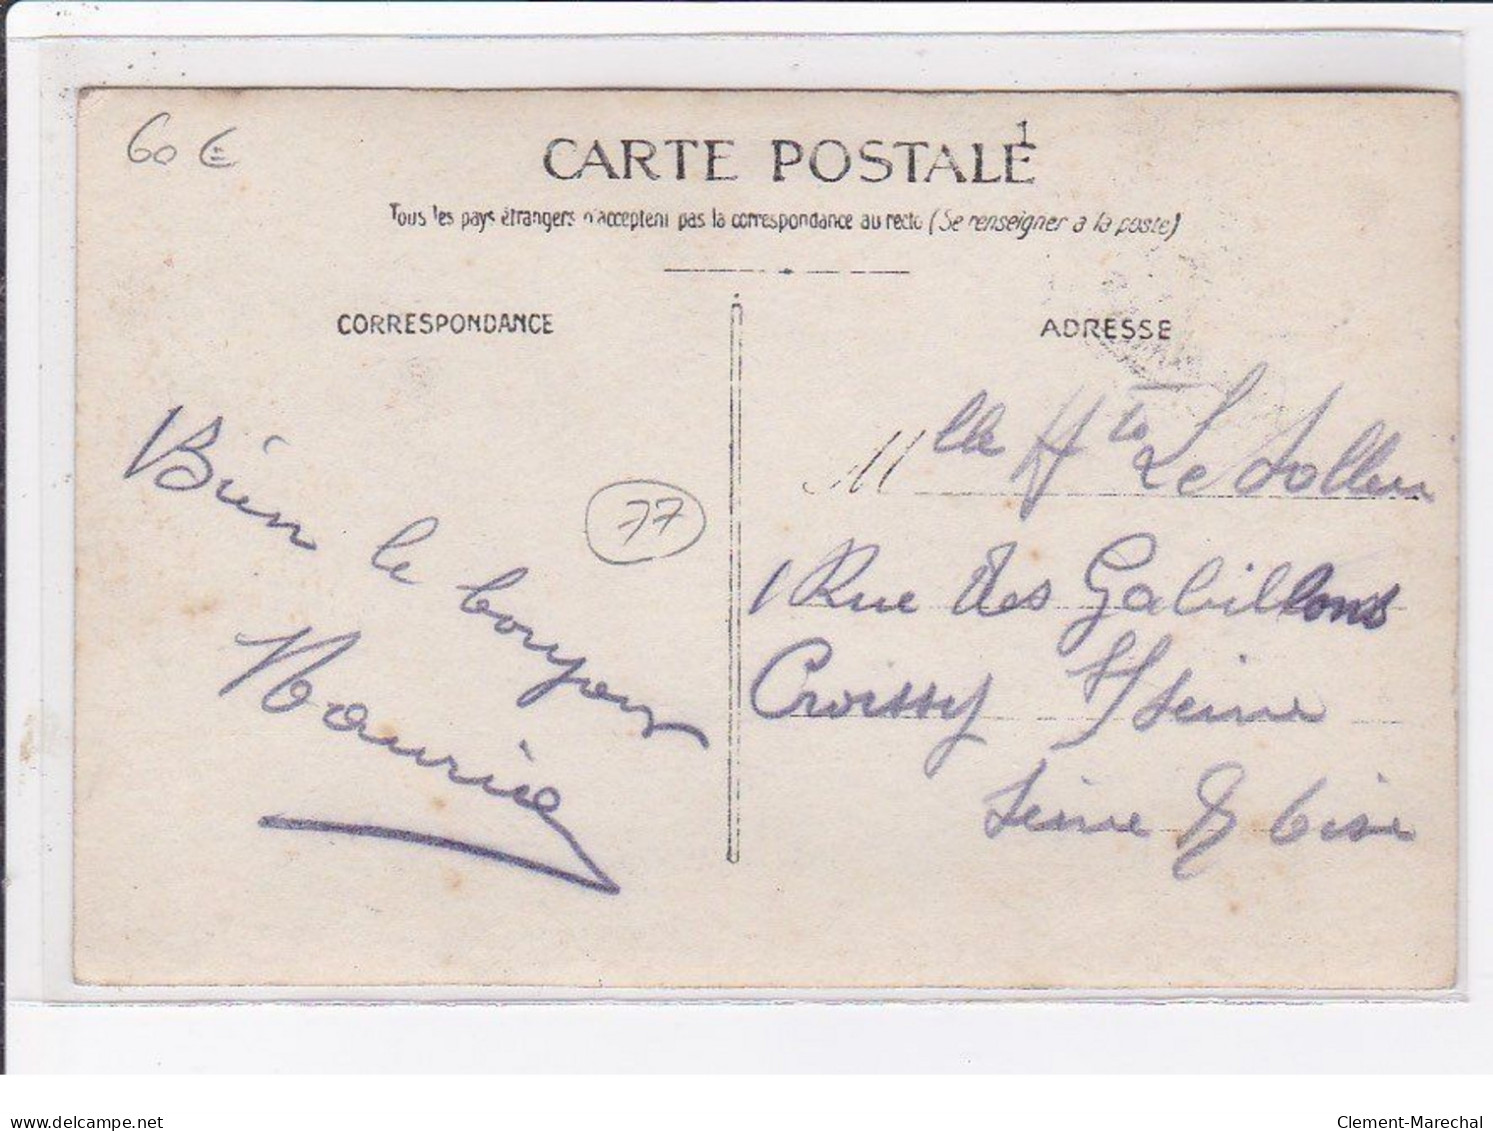 60 €
1
CARTE POSTALE
Tous les pays étrangers n'acceptent pas la correspondance au recto (Se renseigner a la poste)
CORRESPONDANCE
Bien le bonjour
Maurice
77
ADRESSE
Mlle Hte Le Sollein
1 Rue des Gabillons
Croissy s/ Seine
Seine & Oise
delcampe.net
Clement-Marechal